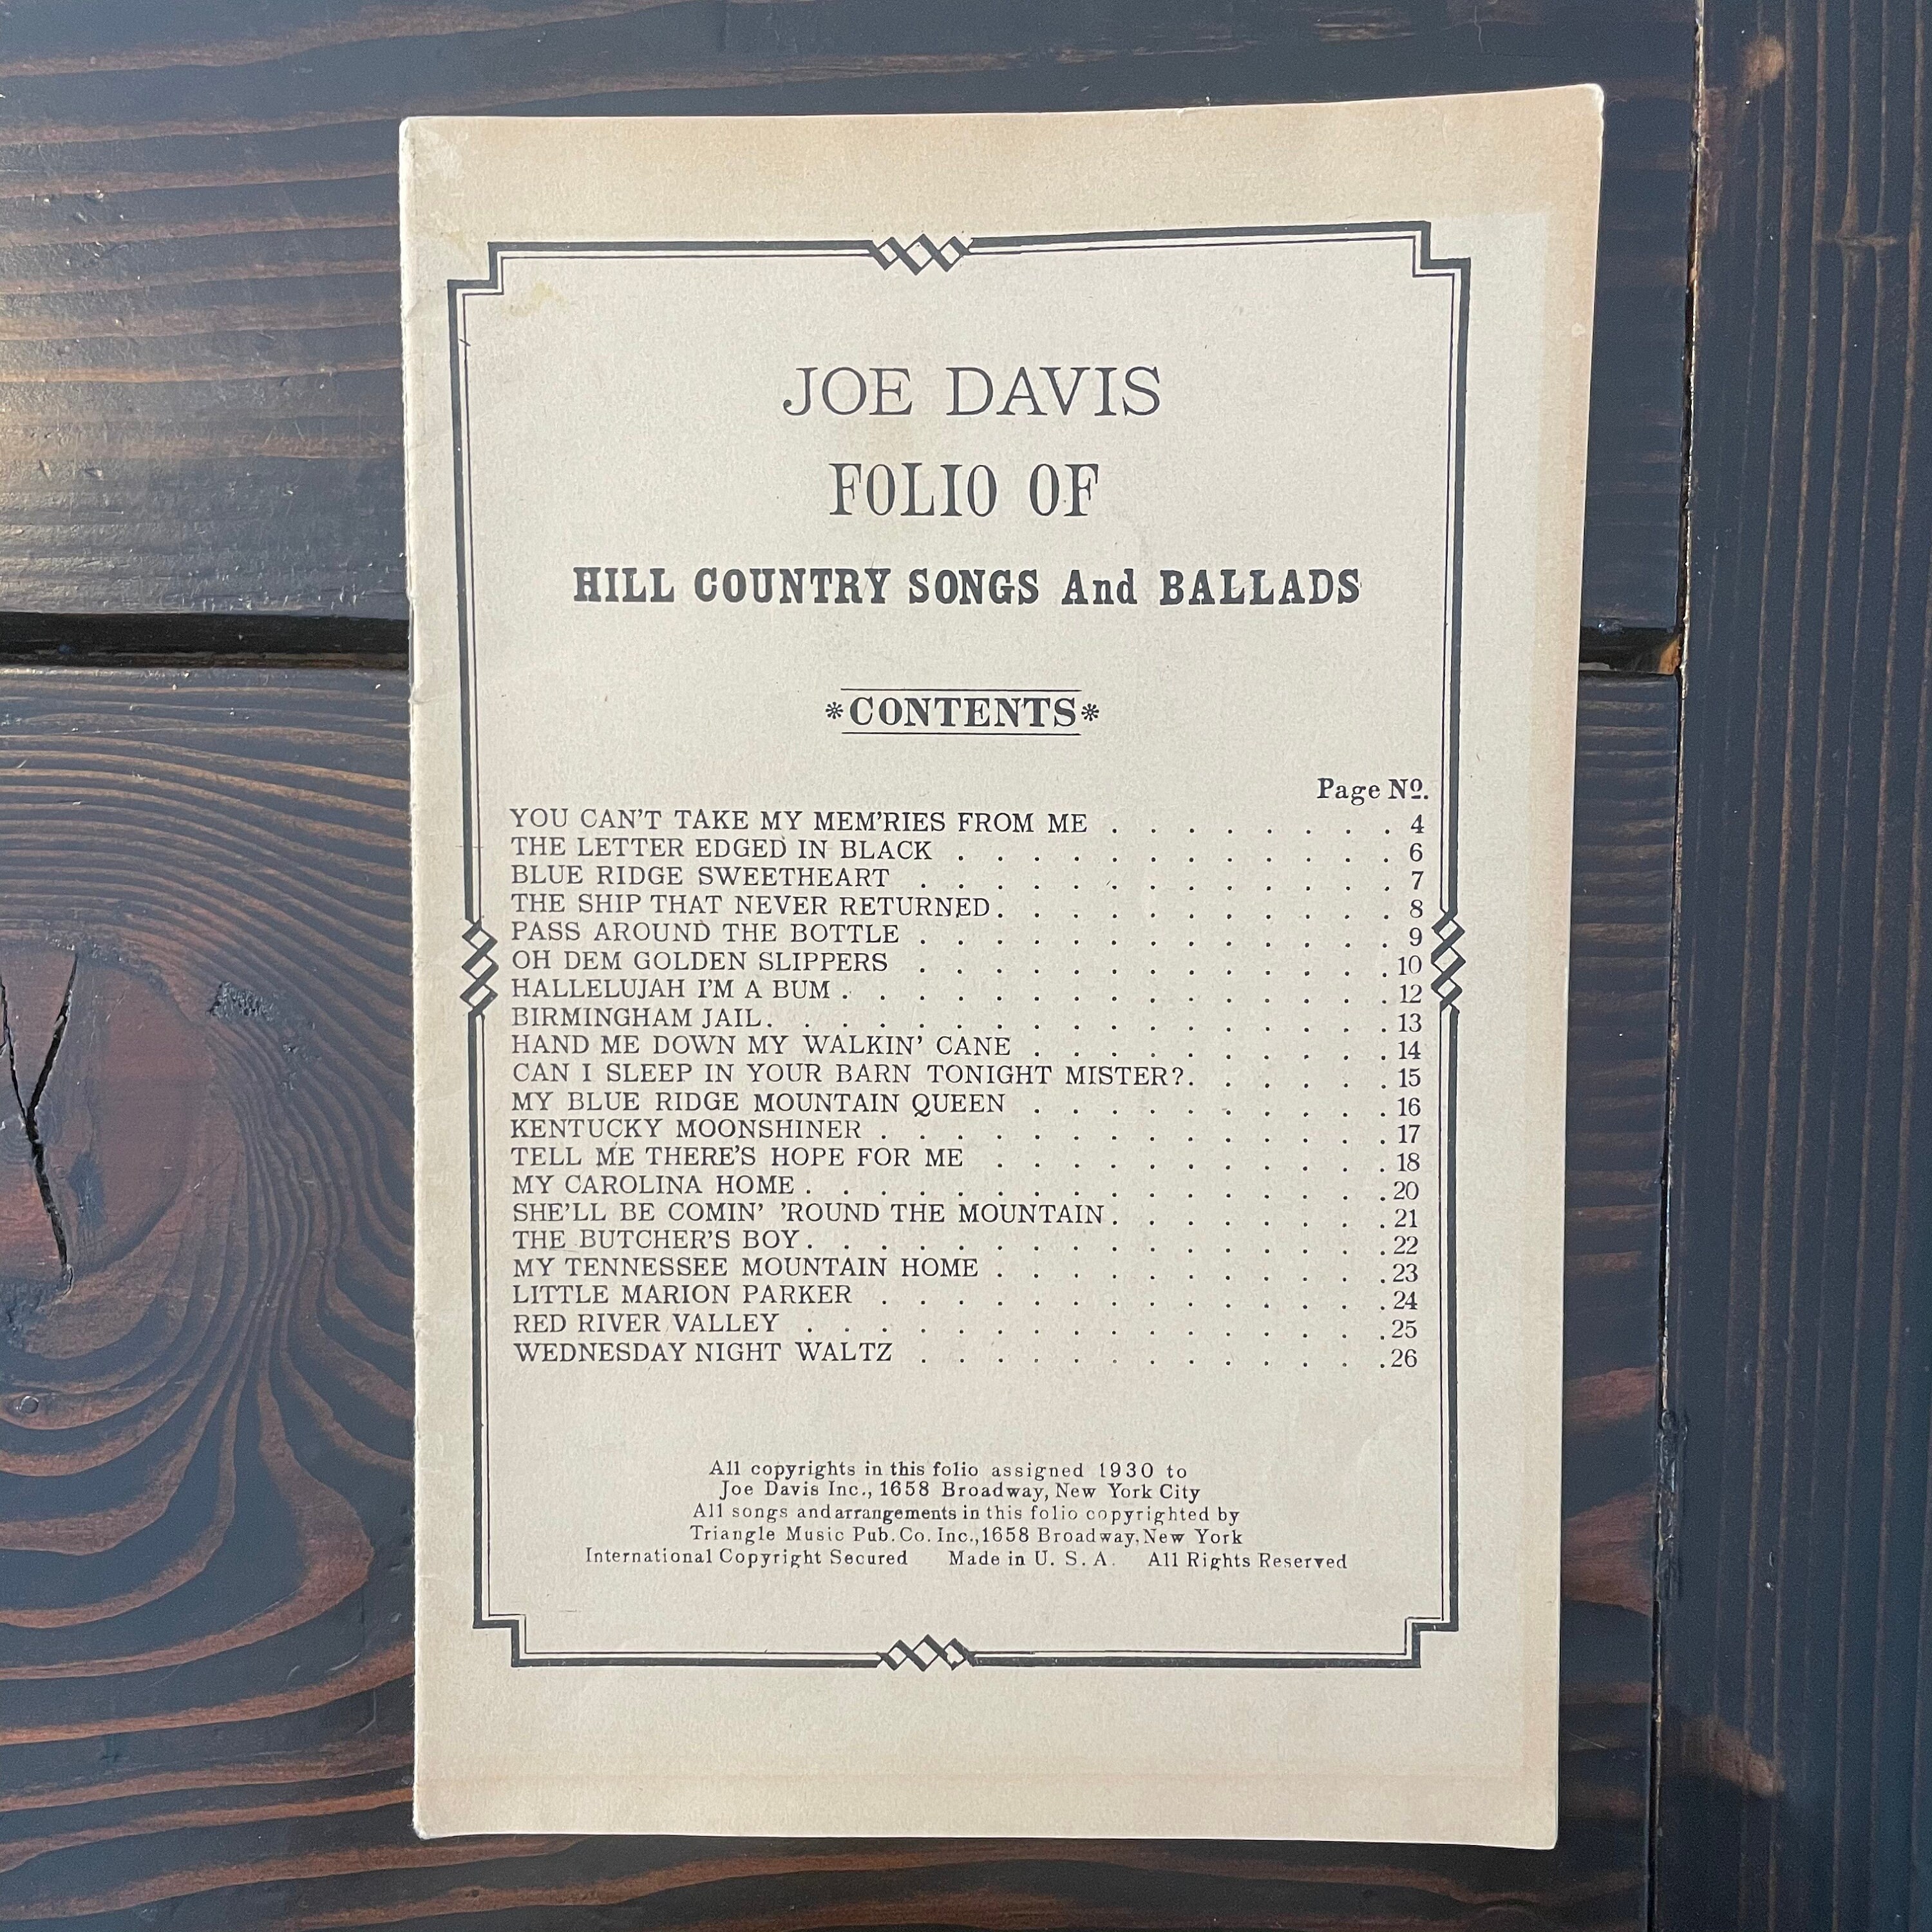 JOE DAVIS
FOLIO OF
HILL COUNTRY SONGS And BALLADS
*CONTENTS*
Page No.
YOU CAN'T TAKE MY MEM'RIES FROM ME . . . . . . . . 4
THE LETTER EDGED IN BLACK . . . . . . . . . . . . 6
BLUE RIDGE SWEETHEART . . . . . . . . . . . . . 7
THE SHIP THAT NEVER RETURNED . . . . . . . . . . . 8
PASS AROUND THE BOTTLE . . . . . . . . . . . . . 9
OH DEM GOLDEN SLIPPERS . . . . . . . . . . . . . 10
HALLELUJAH I'M A BUM . . . . . . . . . . . . . . . 12
BIRMINGHAM JAIL . . . . . . . . . . . . . . . . . 13
HAND ME DOWN MY WALKIN' CANE . . . . . . . . . . 14
CAN I SLEEP IN YOUR BARN TONIGHT MISTER? . . . . . . 15
MY BLUE RIDGE MOUNTAIN QUEEN . . . . . . . . . . 16
KENTUCKY MOONSHINER . . . . . . . . . . . . . . 17
TELL ME THERE'S HOPE FOR ME . . . . . . . . . . . 18
MY CAROLINA HOME . . . . . . . . . . . . . . . . 20
SHE'LL BE COMIN' 'ROUND THE MOUNTAIN . . . . . . . . 21
THE BUTCHER'S BOY . . . . . . . . . . . . . . . . 22
MY TENNESSEE MOUNTAIN HOME . . . . . . . . . . . 23
LITTLE MARION PARKER . . . . . . . . . . . . . . 24
RED RIVER VALLEY . . . . . . . . . . . . . . . . 25
WEDNESDAY NIGHT WALTZ . . . . . . . . . . . . . 26
All copyrights in this folio assigned 1930 to
Joe Davis Inc., 1658 Broadway, New York City
All songs and arrangements in this folio copyrighted by
Triangle Music Pub. Co. Inc., 1658 Broadway, New York
International Copyright Secured Made in U. S. A. All Rights Reserved